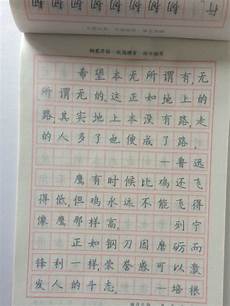 希望本无所谓有,无
所谓无的,这正如地上的
路,其实地上本没有路,走
的人多了也便成了路。
—鲁迅
鹰有时候比鸡还飞
得低,但鸡永远也不能飞
得像鹰那样高。
正如钢刀因磨砺而
锋利一样,荣誉感可以激
发人的斗志。—培根